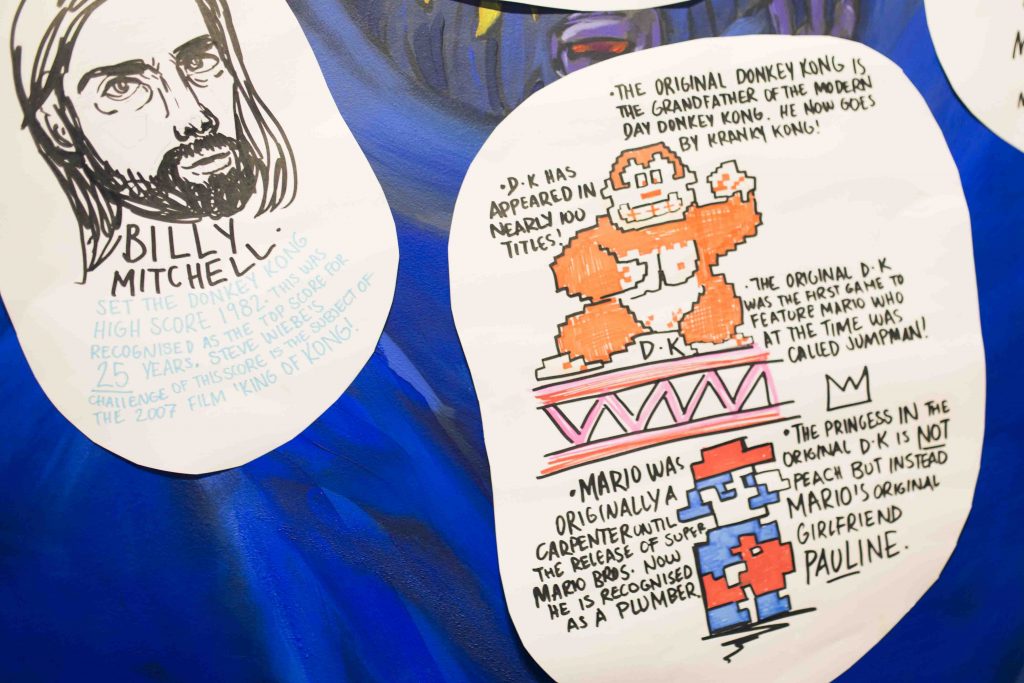 BILLY
MITCHELL.
SET THE DONKEY KONG
HIGH SCORE 1982. THIS WAS
RECOGNISED AS THE TOP SCORE FOR
25 YEARS. STEVE WIEBE'S
CHALLENGE OF THIS SCORE IS THE SUBJECT OF
THE 2007 FILM 'KING OF KONG!'
•THE ORIGINAL DONKEY KONG IS
THE GRANDFATHER OF THE MODERN
DAY DONKEY KONG. HE NOW GOES
BY KRANKY KONG!
•D.K HAS
APPEARED IN
NEARLY 100
TITLES!
•THE ORIGINAL D.K
WAS THE FIRST GAME TO
FEATURE MARIO WHO
AT THE TIME WAS
CALLED JUMPMAN!
D.K
•MARIO WAS
ORIGINALLY A
CARPENTER UNTIL
THE RELEASE OF SUPER
MARIO BROS. NOW
HE IS RECOGNISED
AS A PLUMBER.
•THE PRINCESS IN THE
ORIGINAL D.K IS NOT
PEACH BUT INSTEAD
MARIO'S ORIGINAL
GIRLFRIEND
PAULINE.